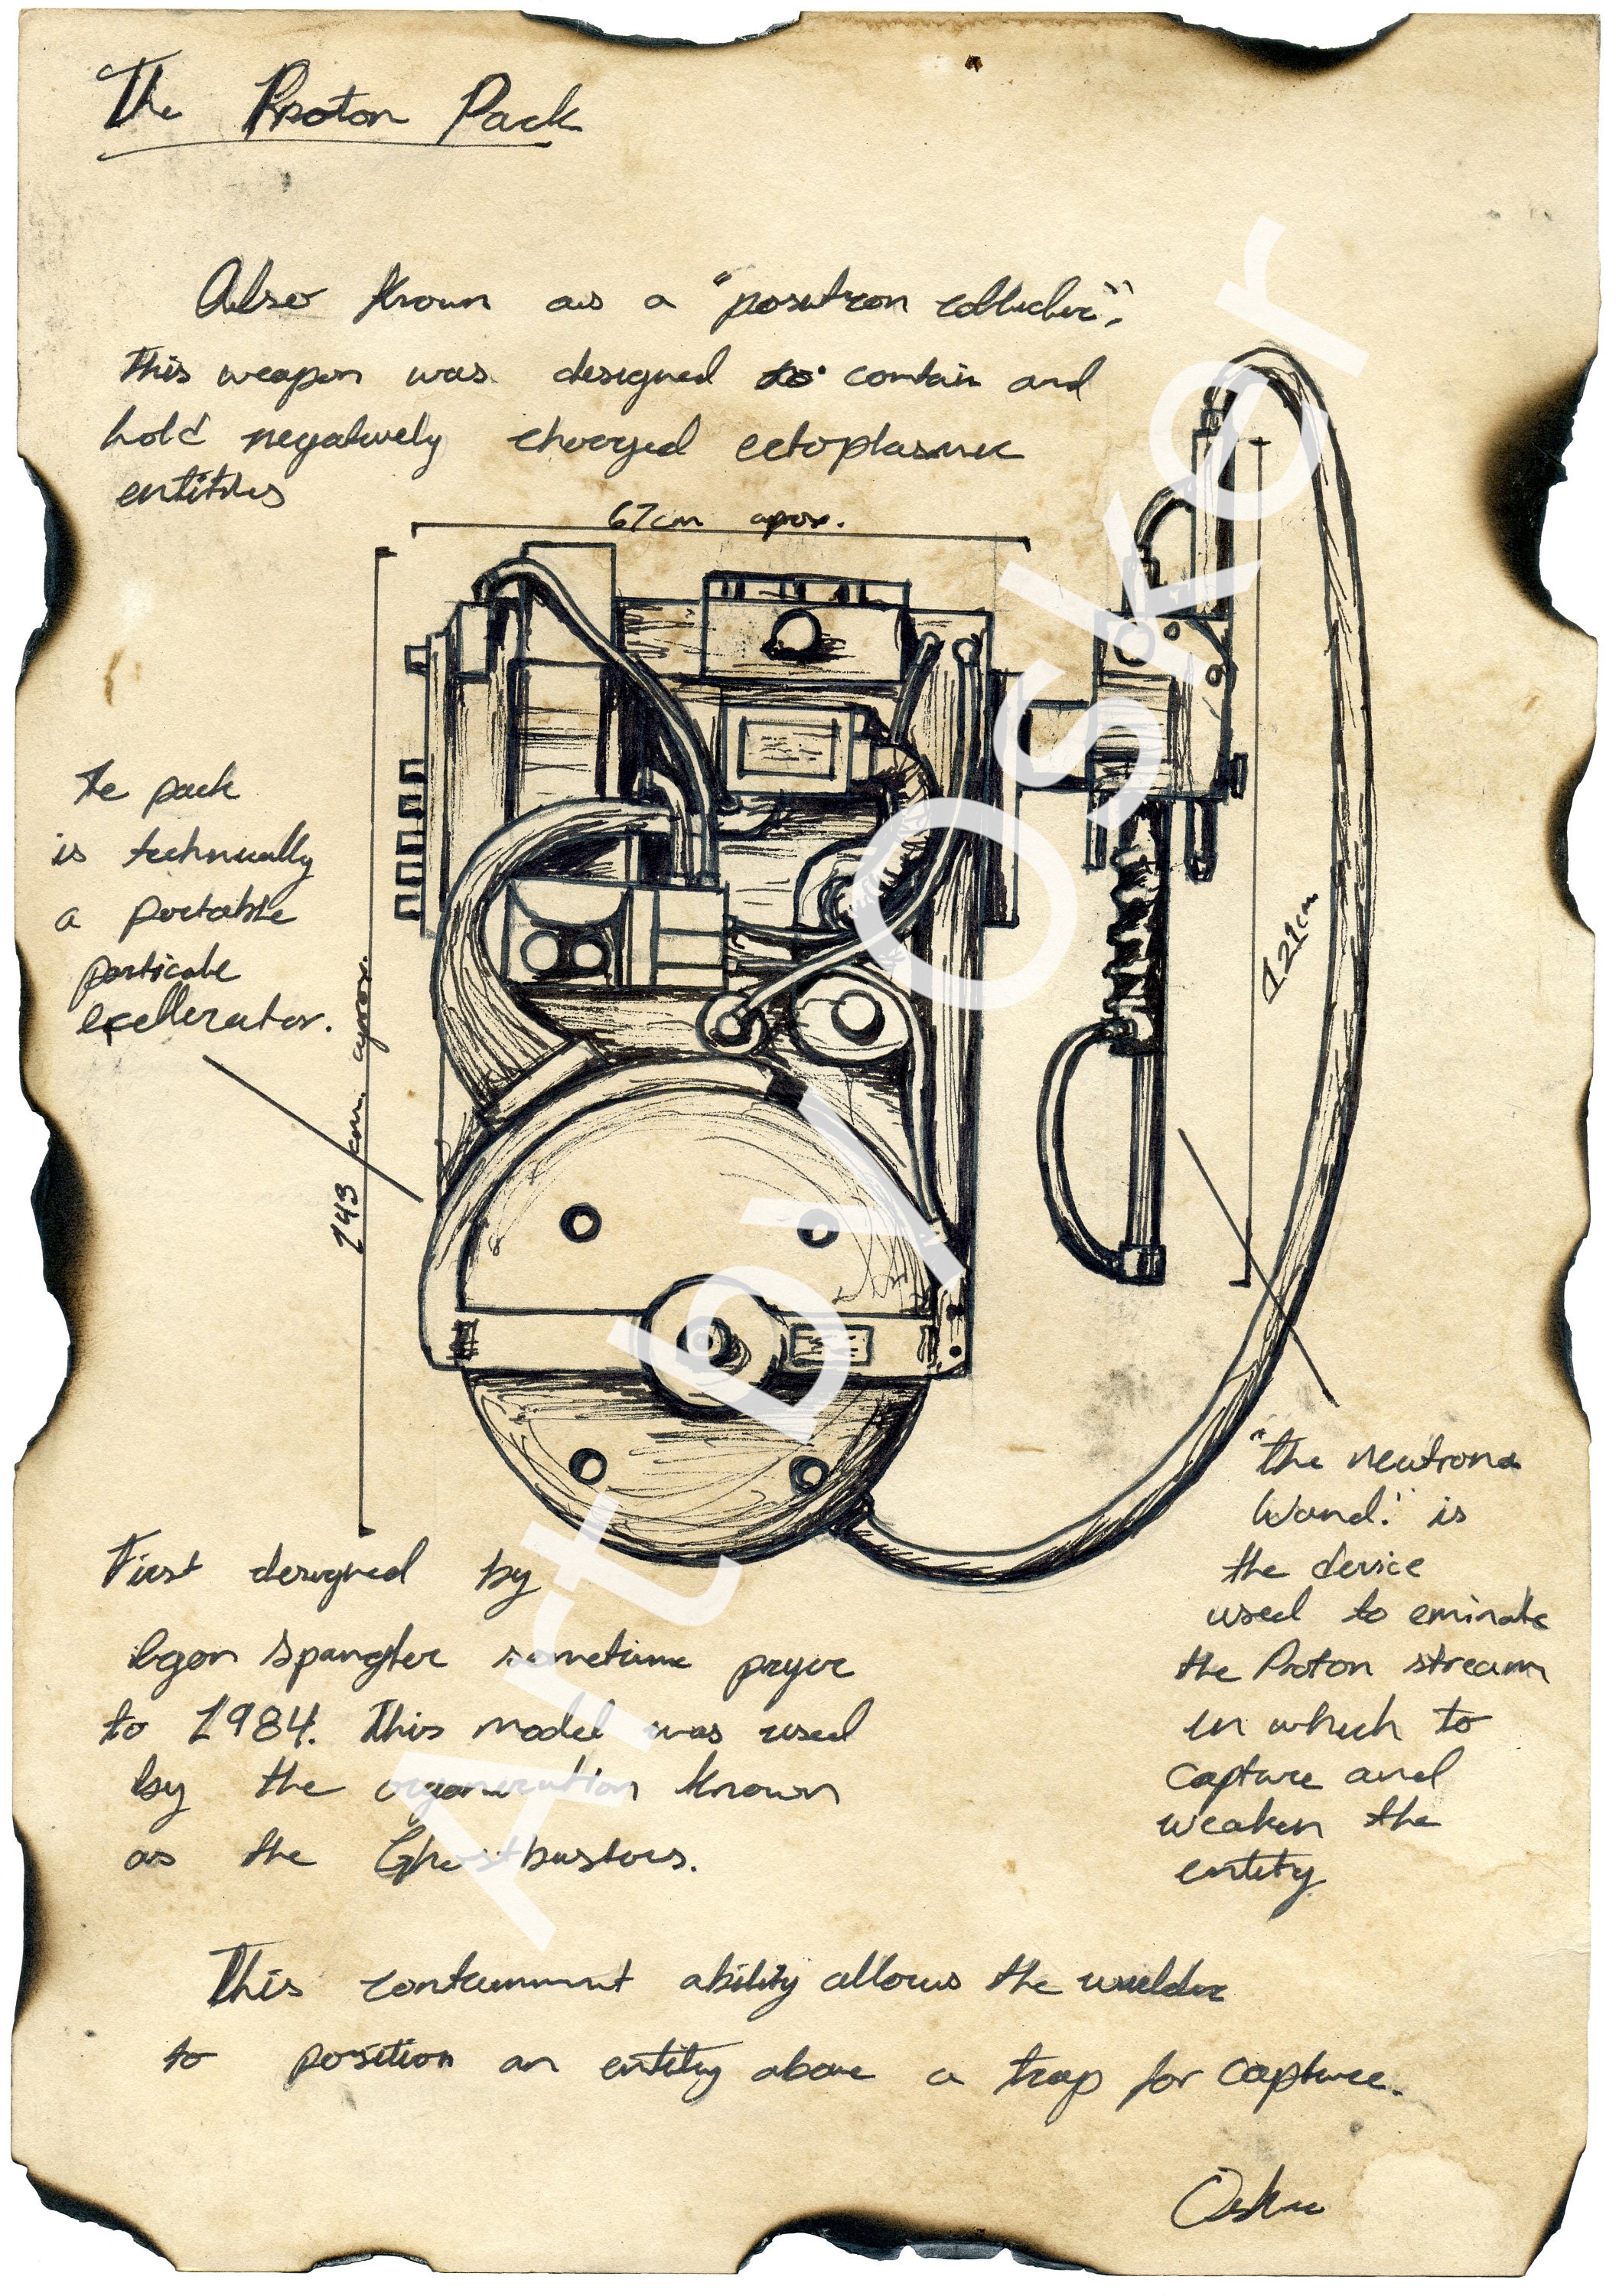 The Proton Pack
Also Known as a "positron collider",
this weapon was designed to contain and
hold negatively charged ectoplasmic
entities
67cm aprox.
te pack
is technically
a portable
particale
excellerator.
143 cm. aprox.
121cm
"the neutrona
Wand." is
the device
used to eminate
the Proton stream
in which to
capture and
weaken the
entity
First designed by
Egon Spangler sometime pryor
to 1984. This model was used
by the organization known
as the Ghostbusters.
This containment ability allows the wielder
to position an entity above a trap for capture.
Oskar
Art by Oskar